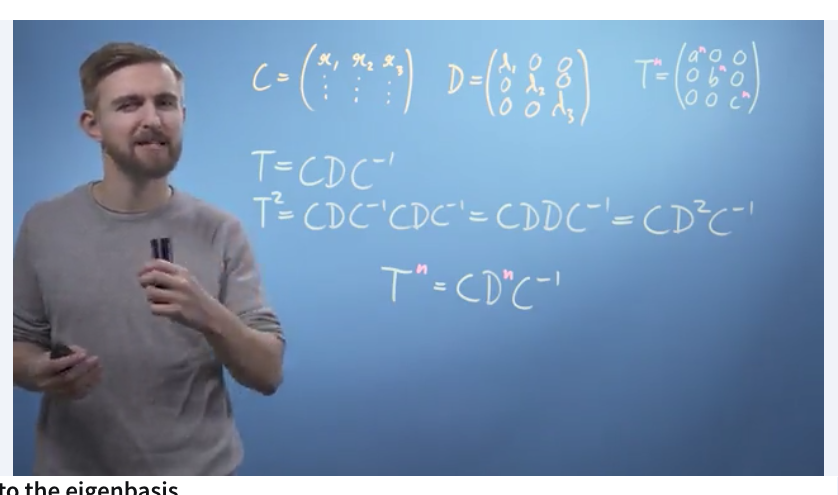 C = (x₁ x₂ x₃ ⋮ ⋮ ⋮) D = (λ₁ 0 0 0 λ₂ 0 0 0 λ₃) Tⁿ = (aⁿ 0 0 0 bⁿ 0 0 0 cⁿ)
T = CDC⁻¹
T² = CDC⁻¹CDC⁻¹ = CDDC⁻¹ = CD²C⁻¹
Tⁿ = CDⁿC⁻¹
to the eigenbasis